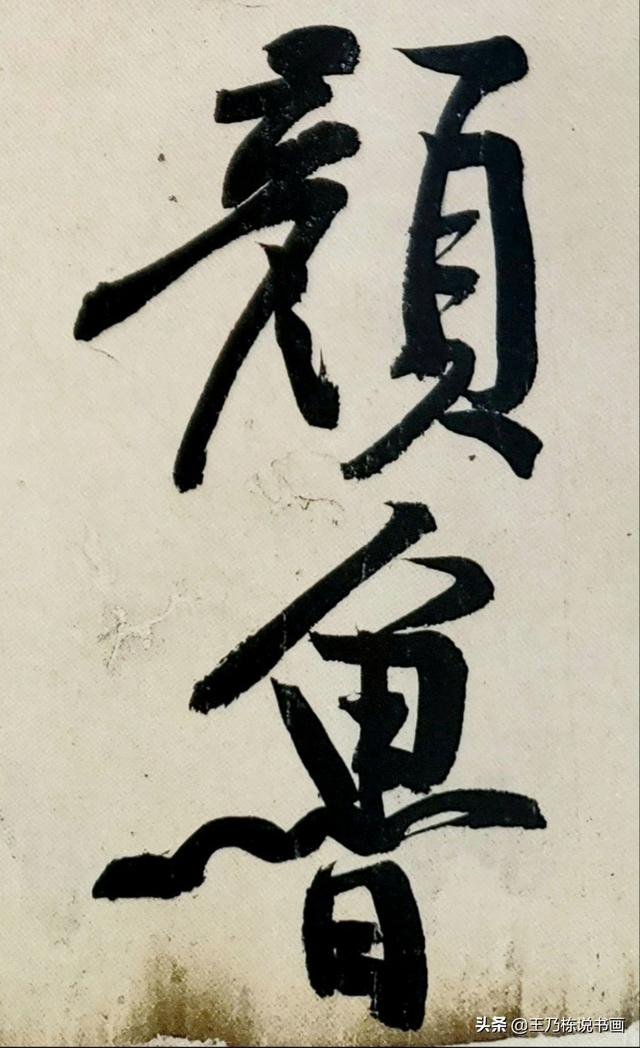 顔魯
头条 @王乃栋说书画